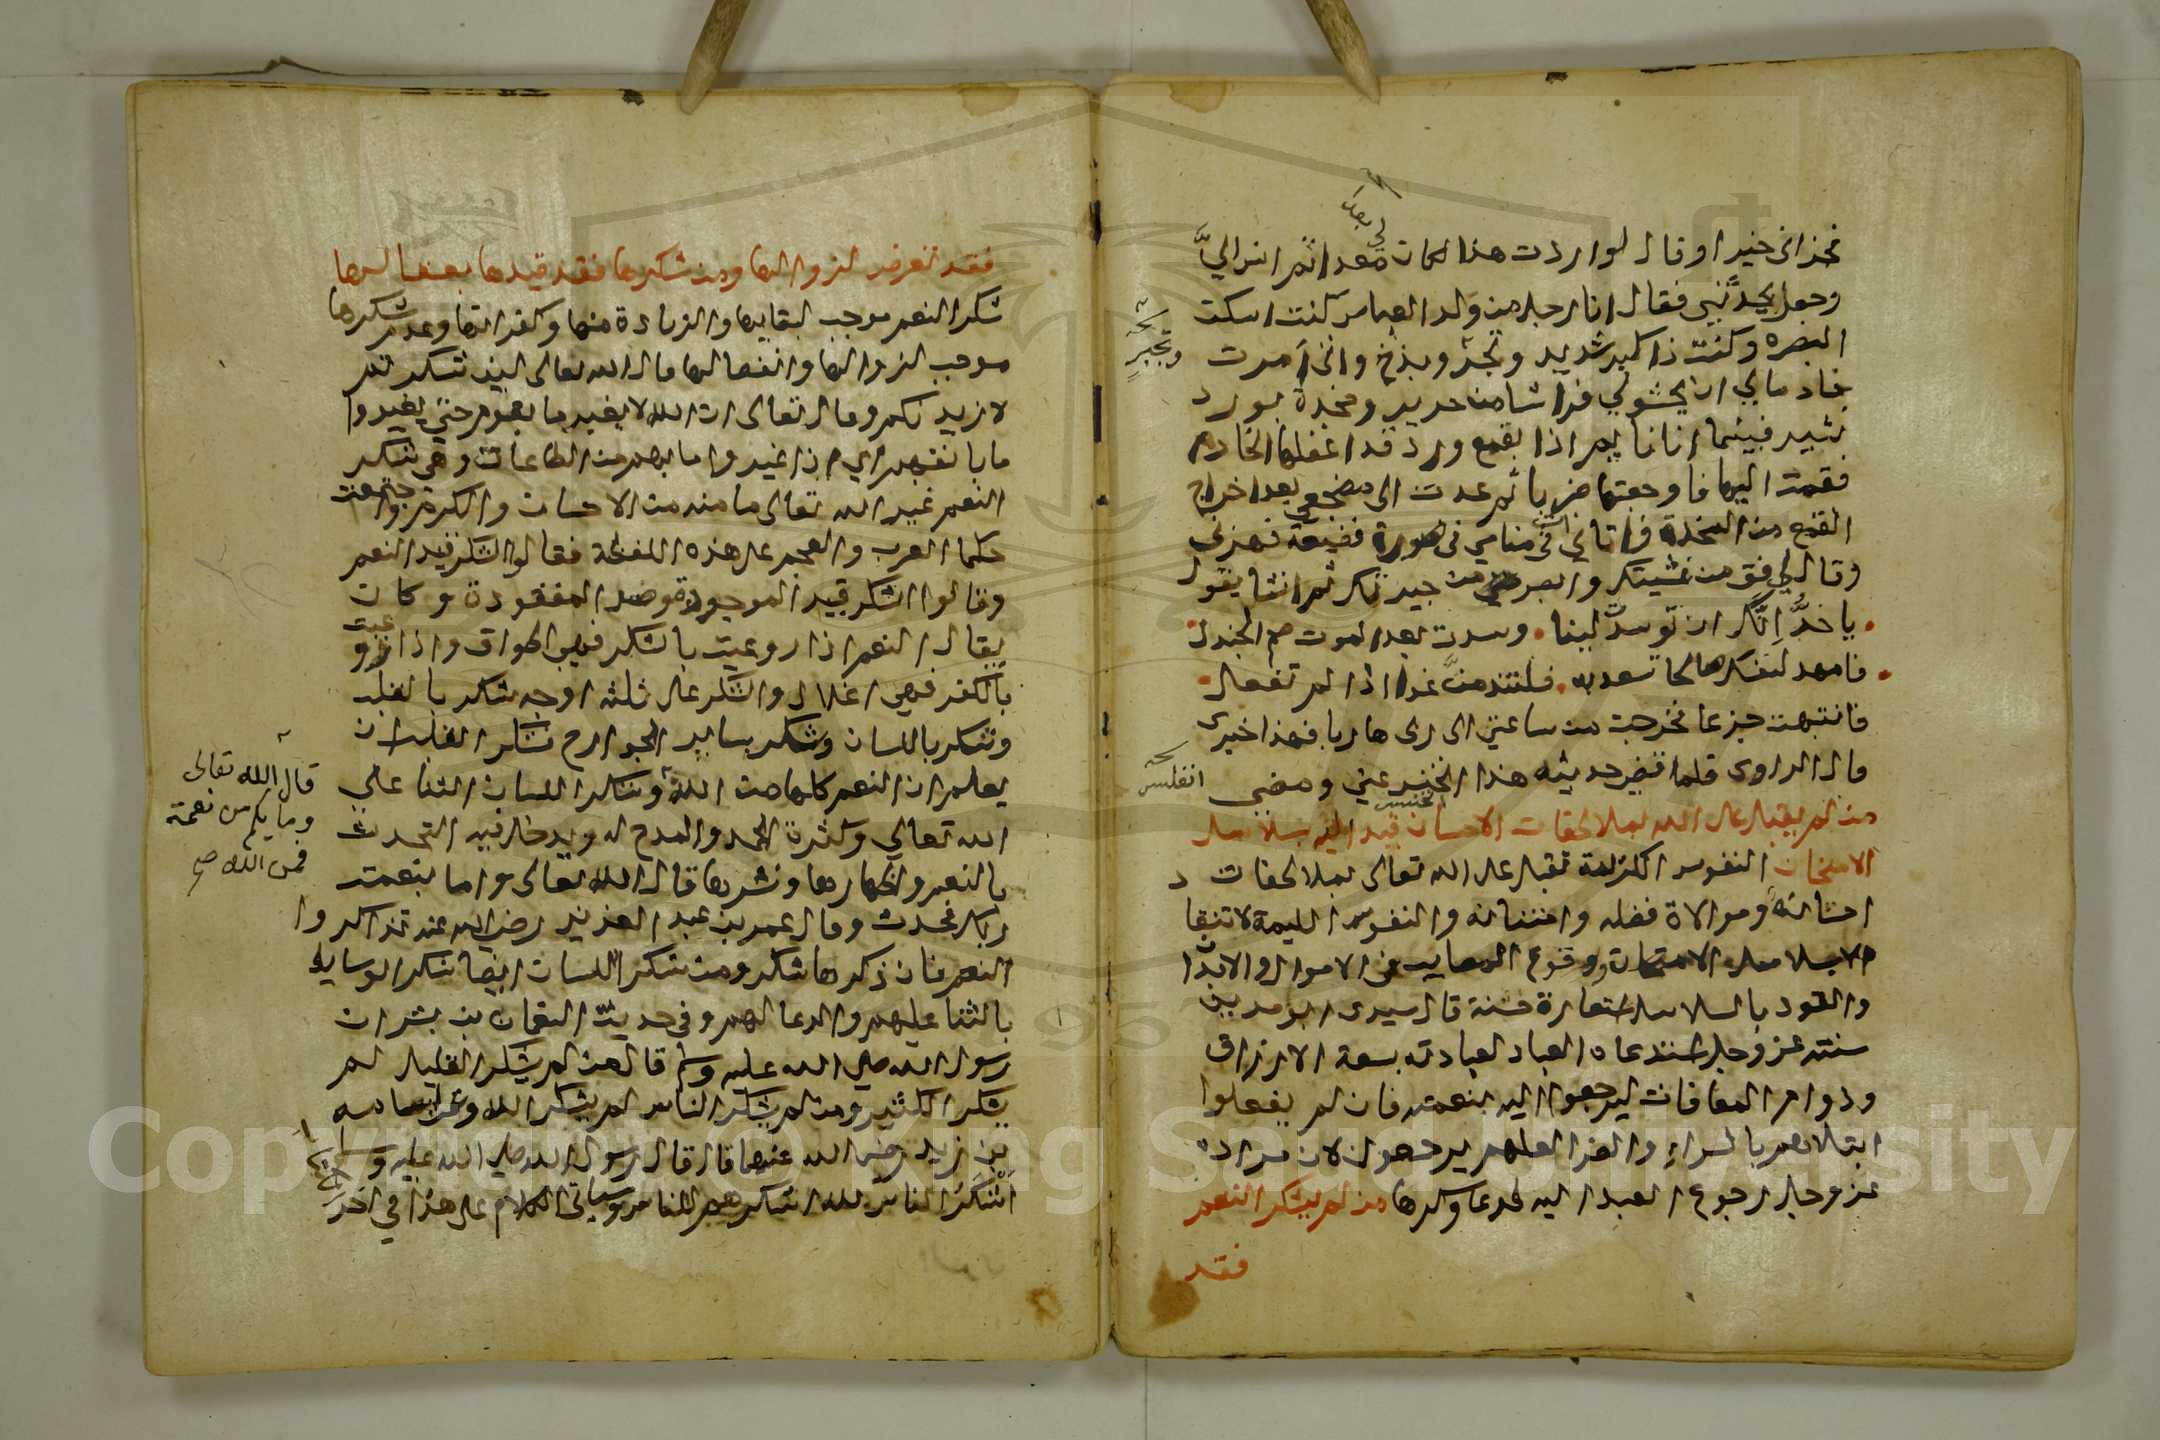 فجزاني خيرا وقال لو اردت هذا لكان معدا ثم انس اليَّ
لي بعد
وجعل يحدثني فقال انا رجل من ولد العباس كنت اسكن
البصره وكنت ذا كبر شديد وتجبر وبذخ واني امرت
نخه وتجبر
خادما لي ان يحشو لي فراشا من حرير ومخدة بورد
نثير فبينما انا نايم اذا بقمع ورد قد اغفلها الخادم
فقمت اليها فاوجعتها ضربا ثم عدت الى مضجعي بعد اخراج
القمع من المخدة فاتاني آت في منامي في صورة فضيعة فهزني
وقال لي فق من غشيتك وابصر من حيرتك ثم انشا يقول
يا خدُّ انك ان توسد لينا . وسدت بعد الموت صم الجندل
فامهد لنفسك صالحا تسعد به . فلتندمنَّ غدا اذا لم تفعل
فانتبهت جزعا فخرجت من ساعتي الى ربي هاربا فهذا خبري
قال الراوي فلما قضى حديثه هذا انخنس عني ومضى
نخه انفلس
من لم يقبل على الله بملاطفات الاحسان قيد اليه بسلاسل
الامتحان النفوس الكريمة تقبل على الله تعالى بملاطفات
احسانه وموالاة فضله وامتنانه والنفوس اللييمة لا تنقاد
الا بسلاسل الامتحان ووقوع المصايب في الاموال والابدان
والقود بالسلاسل استعارة حسنة قال سيدي ابو مدين
سنته عز وجل استدعاء العباد لعبادته بسعة الارزاق
ودوام المعافات ليرجعوا اليه بنعمته فان لم يفعلوا
ابتلاهم بالسراء والضرا لعلهم يرجعون لان مراده
عز وجل رجوع العبد اليه طوعا وكرها من لم يشكر النعم
فقد
فقد تعرض لزوالها ومن شكرها فقد قيدها بعقالها
شكر النعم موجب لبقايها والزيادة منها وكفرانها وعدم شكرها
موجب لزوالها وانفصالها قال الله تعالى لين شكرتم
لازيدنكم وقال تعالى ان الله لا يغير ما بقوم حتى يغيروا
ما بانفسهم اي اذا غيروا ما بهم من الطاعات وهي شكر
النعم غير الله تعالى ما منه من الاحسان والكرم واجتمعت
حكما العرب والعجم على هذه اللفظة فقالوا الشكر قيد النعم
وقالوا الشكر قيد الموجود وصيد المفقودة وكان
يقال النعم اذا روعيت بالشكر فهي اطواق واذا روعيت
بالكفر فهي اغلال والشكر على ثلثه اوجه شكر بالقلب
وشكر باللسان وشكر بساير الجوارح فشكر القلب ان
يعلم ان النعم كلها من الله وشكر اللسان الثنا على
قال الله تعالى
وما بكم من نعمة
فمن الله صح
الله تعالى وكثرة الحمد والمدح له ويدخل فيه التحدث
بالنعم واظهارها ونشرها قال الله تعالى واما بنعمت
ربك فحدث وقال عمر بن عبد العزيز رضي الله عنه تذاكروا
النعم فان ذكرها شكر ومن شكر اللسان ايضا شكر الوسايط
بالثنا عليهم والدعا لهم وفي حديث النعمان بن بشير ان
رسول الله صلى الله عليه وسلم قال من لم يشكر القليل لم
يشكر الكثير ومن لم يشكر الناس لم يشكر الله وعن اسامه
بن زيد رضي الله عنهما قال قال رسول الله صلى الله عليه وسلم
اشكر الناس لله اشكرهم للناس وسياتي الكلام على هذا في اخر